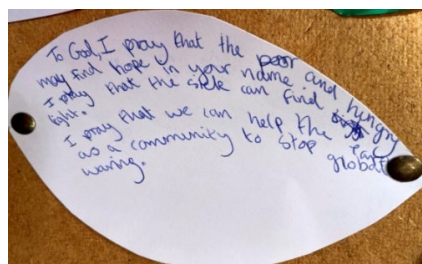 To God, I pray that the poor and hungry
may find hope in your name
I pray that the sick can find
light.
I pray that we can help the
as a community to stop global
waring.